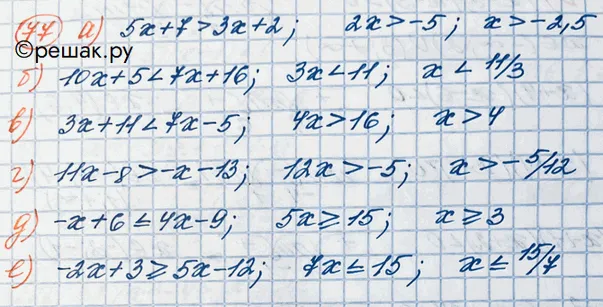 77 а) 5x+7>3x+2; 2x>-5; x>-2,5
©решак.ру
б) 10x+5<7x+16; 3x<11; x<11/3
в) 3x+11<7x-5; 4x>16; x>4
г) 11x-8>-x-13; 12x>-5; x>-5/12
д) -x+6≤4x-9; 5x≥15; x≥3
е) -2x+3≥5x-12; 7x≤15; x≤15/7